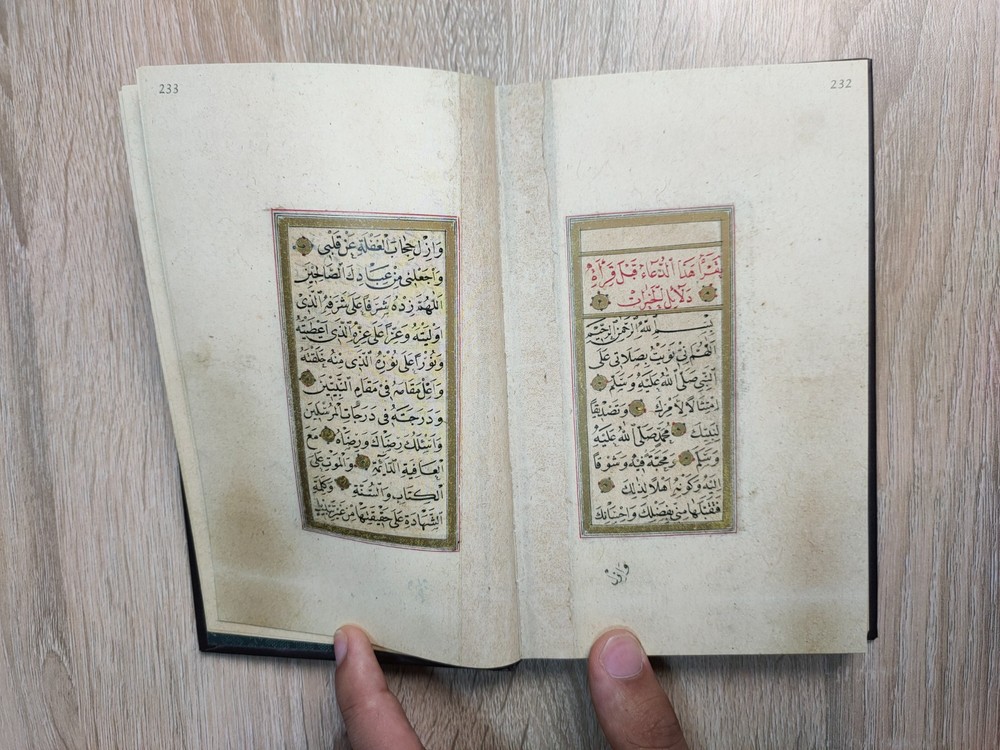 232
يقرأ هذا الدعاء قبل قرأة
دلائل الخيرات
بسم الله الرحمن الرحيم
اللهم اني نويت بصلاتي على
النبي صلى الله عليه وسلم
امتثالا لامرك وتصديقا
لنبيك محمد صلى الله عليه
وسلم ومحبة فيه وشوقا
اليه وكونه اهلا لذلك
فتقبلها مني بفضلك واحسانك
وازل
233
وَازِل حِجَابَ الغَفْلَةِ عَنْ قَلْبِي
واجعلني من عبادك الصالحين
اللهم زده شرفا على شرفه الذي
اوليته وعزا على عزه الذي اعطيته
ونورا على نوره الذي منه خلقته
واعل مقامه في مقام النبيين
ودرجته في درجات المرسلين
واسئلك رضاك ورضاه مع
العافية الدائمة والموت على
الكتاب والسنة وكلمة
الشهادة على حقيقتها من غير